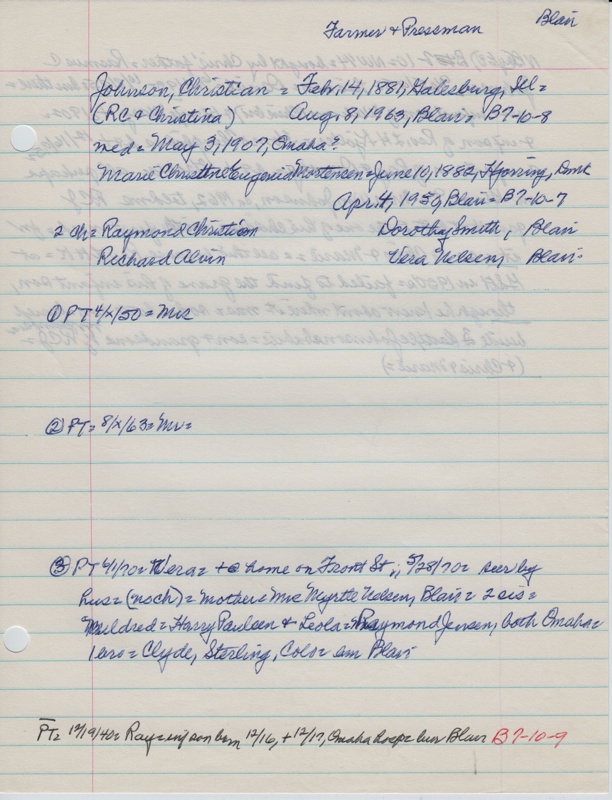 Farmer & Pressman Blair
Johnson, Christian = Feb. 14, 1881, Galesburg, Ill=
(RC & Christina) Aug. 8, 1963, Blair= B7-10-8
med= May 3, 1907, Omaha?
Marie Christine Eugenia Mortensen= June 10, 1882, Hjorring, Dmk
Apr. 4, 1950, Blair= B7-10-7
2 ch= Raymond Christian Dorothy Smith, Blair
Richard Alvin Vera Nelsen, Blair=
① PT 4/x/50= Mrs
② PT= 8/x/63= Mr=
③ PT 4/1/70= Vera= +@ home on Front St,; 5/28/70= surv by
hus= (noch)= mother= Mrs Myrtle Nelsen, Blair= 2 sis=
Mildred= Harry Paulsen & Leola= Raymond Jensen, both Omaha=
1 bro= Clyde, Sterling, Colo= bur Blair
PT= 12/19/40= Ray= inf son born 12/16, + 12/17, Omaha hosp= bur Blair B7-10-9